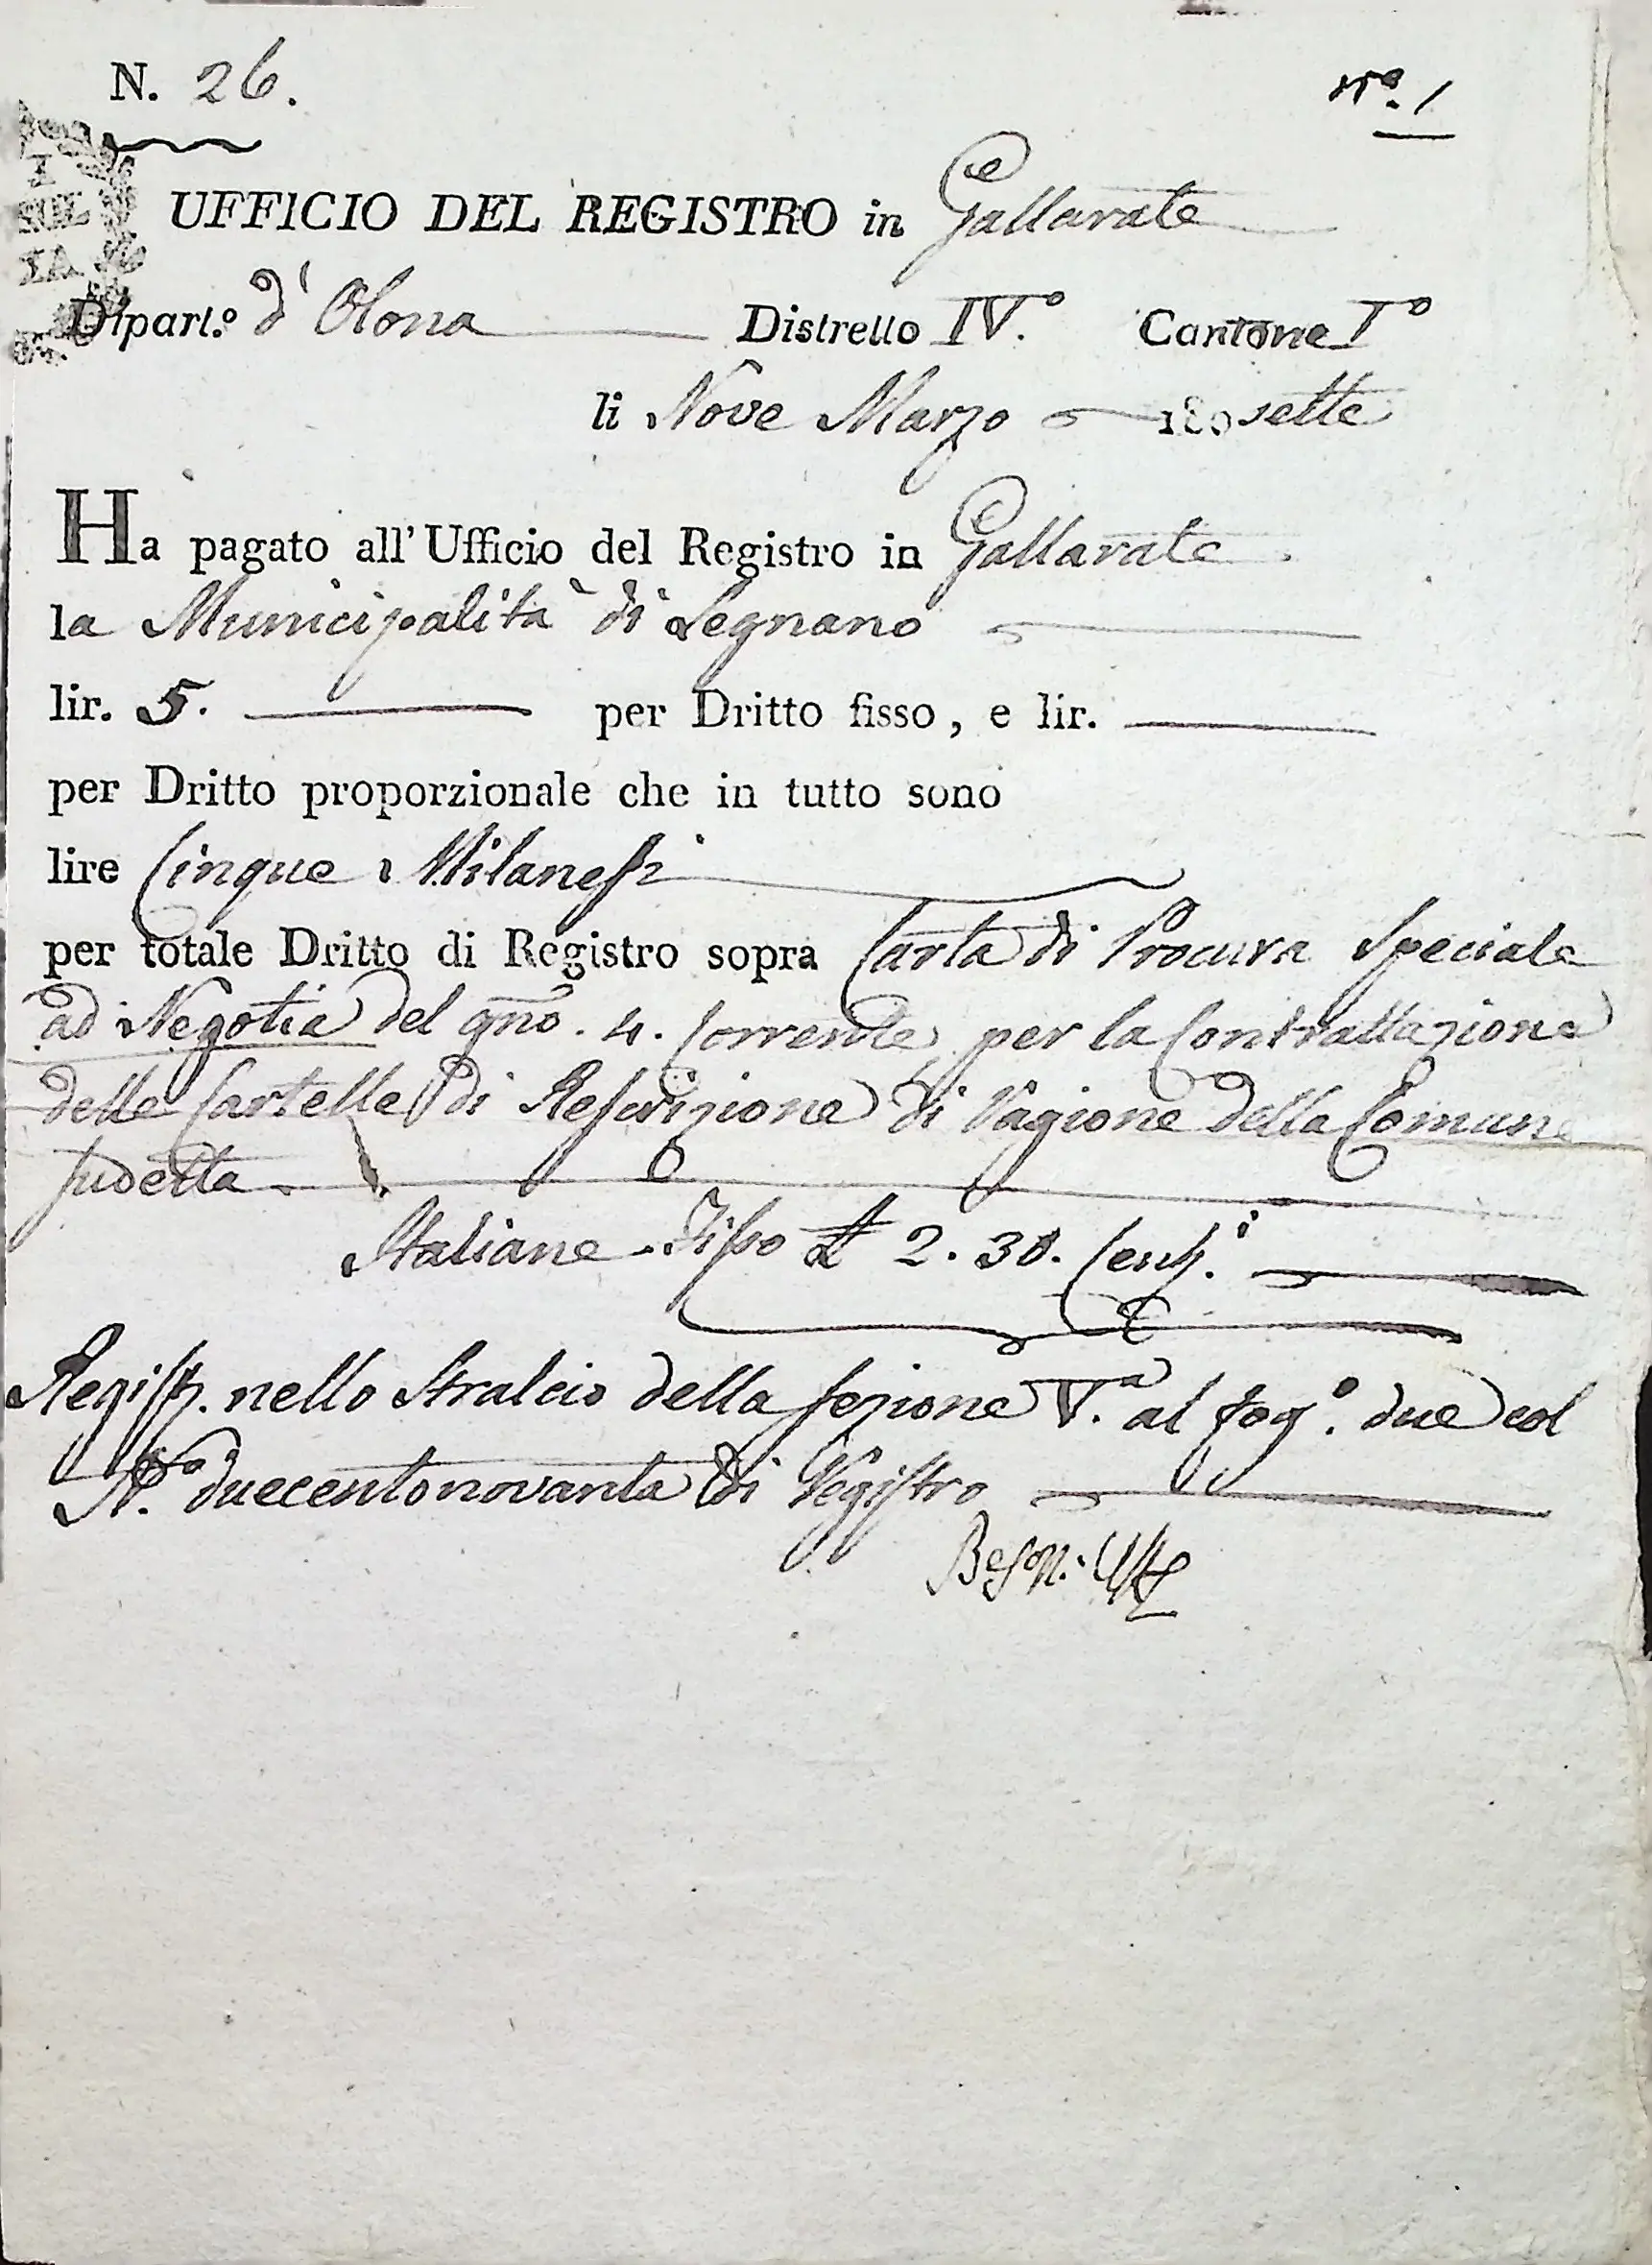 N. 26.
Nº. 1
UFFICIO DEL REGISTRO in Gallarate
Dipart.º d'Olona Distretto IV.º Cantone Iº
li Nove Marzo 180sette
Ha pagato all'Ufficio del Registro in Gallarate
la Municipalità di Legnano
lir. 5. per Dritto fisso, e lir.
per Dritto proporzionale che in tutto sono
lire Cinque Milanesi
per totale Dritto di Registro sopra Carta di Procura Speciale
ad Negotia del gno. 4. Corrente per la Contrattazione
delle Cartelle di Rescrizione di Ragione della Comune
sudetta
Italiane Fisso £ 2. 30.
Regist. nello Stralcio della sezione V.ª al fog.º due col
N.º duecentonovanta di Registro